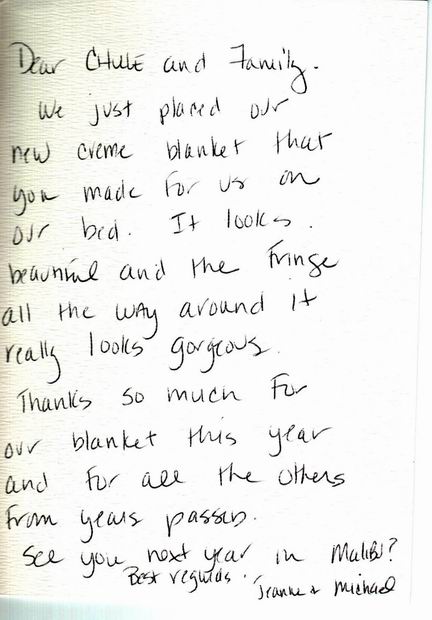 Dear CHULE and Family.
We just placed our
new creme blanket that
you made for us on
our bed. It looks
beautiful and the fringe
all the way around it
really looks gorgeous.
Thanks so much for
our blanket this year
and for all the others
from years passed.
See you next year in Malibu?
Best regards.
Jeanne & Michael